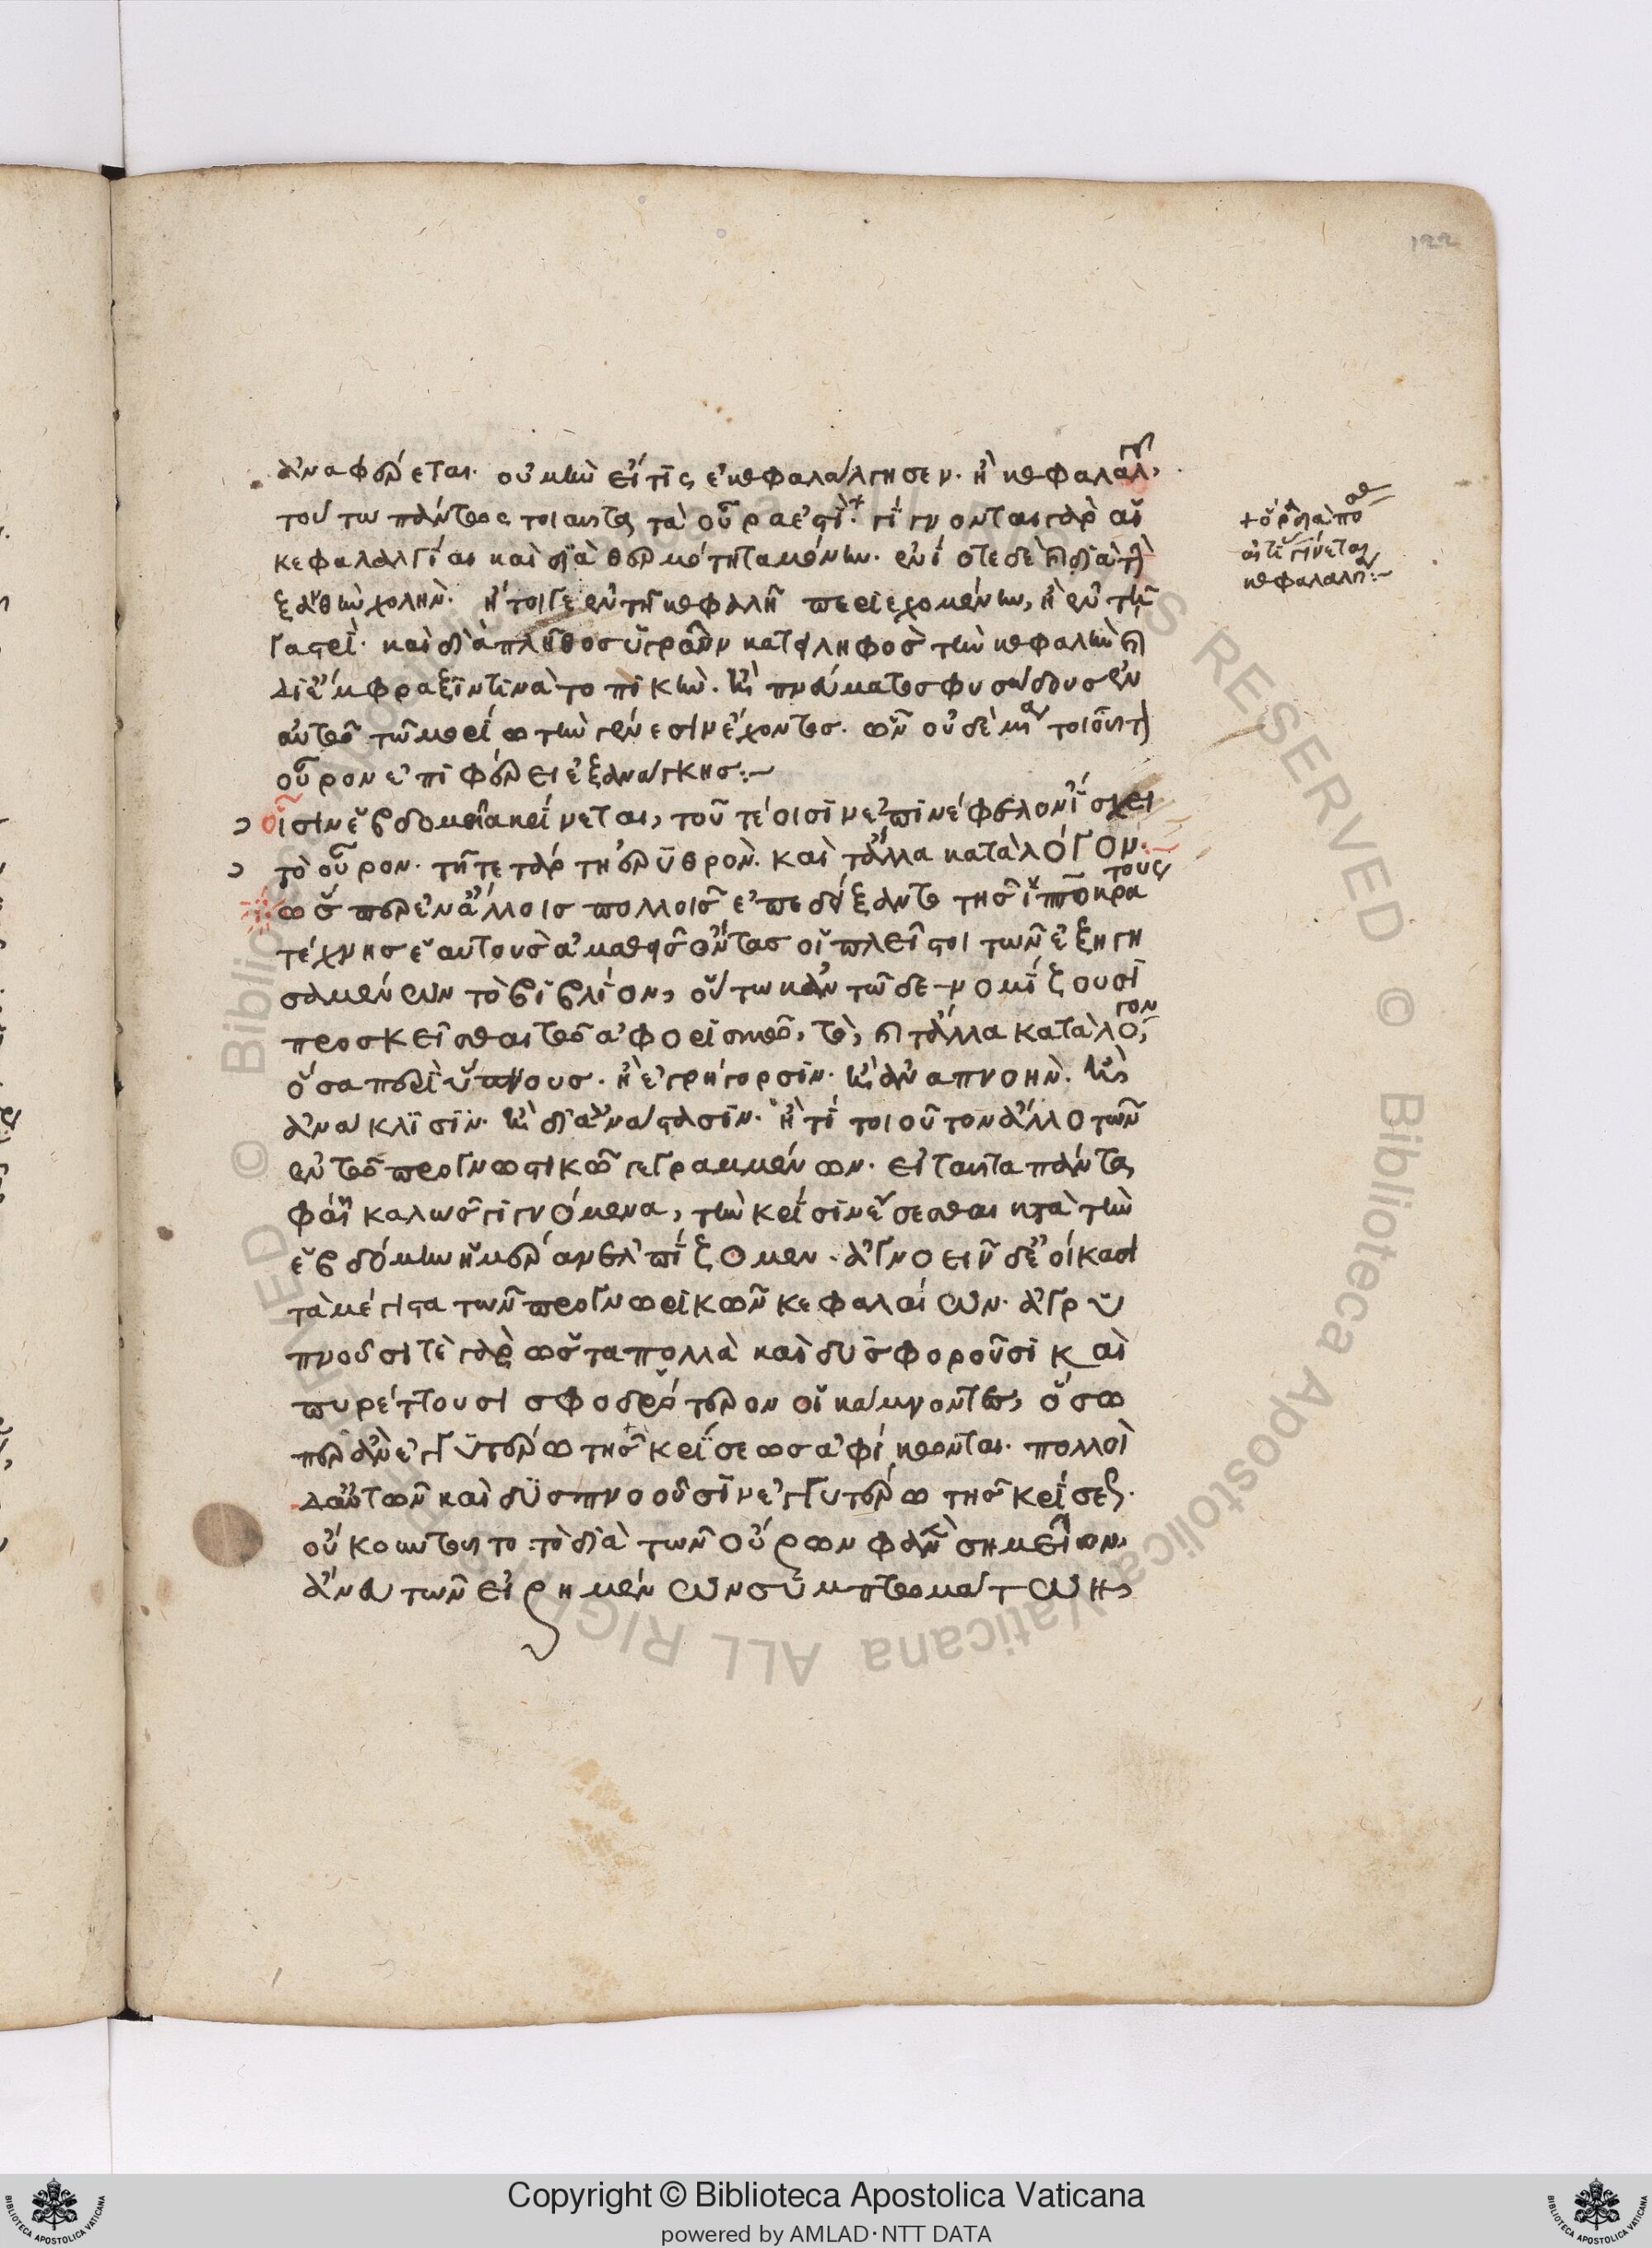 122
ἀναφέρεται. οὐ μὴν εἴ τις ἐκεφαλάλγησεν. ἢ κεφαλαλγεῖ
τούτω πάντως τοιαῦτα τὰ οὖρα ἐστὶ. γίγνονται γὰρ αἱ
κεφαλαλγίαι καὶ διὰ θερμότητα μόνην. ἐνίοτε δὲ καὶ διὰ τὴν
ξανθὴν χολὴν. ἤτοι γε ἐν τῇ κεφαλῇ περιεχομένην, ἢ ἐν τῇ
γαστρὶ. καὶ διὰ πλῆθος ὑγρῶν κατειληφὸς τὴν κεφαλὴν καὶ
δι' ἔμφραξίν τινα τοπικὴν. καὶ πνεύματος φυσώδους ἐν
αὐτῷ τῷ μορίῳ τὴν γένεσιν ἔχοντος. ὧν οὐδὲ μία τοιοῦτον
οὖρον ἐπιφέρει ἐξ ἀνάγκης:~
οἷσιν ἑβδομαῖα κρίνεται, τουτέοισιν ἐπινέφελον ἴσχει
τὸ οὖρον. τῇ τετάρτῃ ἐρυθρὸν. καὶ τἄλλα κατὰ λόγον.
ὥσπερ ἐν ἄλλοις πολλοῖς ἐπεδείξαντο τῆς ἱπποκράτους
τέχνης ἑαυτοὺς ἀμαθεῖς ὄντας οἱ πλεῖστοι τῶν ἐξηγη
σαμένων τὸ βιβλίον, οὕτω κἀν τῷδε νομίζουσι
προσκεῖσθαι τῷ ἀφορισμῷ, τὸ, καὶ τἄλλα κατὰ λόγον,
ὅσα περὶ ὕπνους. ἢ ἐγρήγορσιν. καὶ ἀναπνοὴν. καὶ
ἀνάκλισιν. καὶ διανάστασιν. ἤ τι τοιοῦτον ἄλλο τῶν
ἐν τῷ προγνωστικῷ γεγραμμένων. εἰ ταῦτα πάντα
φαίη καλῶς γιγνόμενα, τὴν κρίσιν ἔσεσθαι κατὰ τὴν
ἑβδόμην ἡμέραν ἐλπίζομεν. ἀγνοεῖν δ' ἐοίκασι
τὰ μέγιστα τῶν προγνωστικῶν κεφαλαίων. ἀγρυ
πνοῦσί τε γὰρ ὡς τὰ πολλὰ καὶ δυσφοροῦσι καὶ
πυρέττουσι σφοδρότερον οἱ κάμνοντες, ὅσω
περ ἂν ἐγγυτέρω τῆς κρίσεως ἀφίκωνται. πολλοὶ
δ' αὐτῶν καὶ δυσπνοοῦσιν ἐγγυτέρω τῆς κρίσεως.
οὔκουν τοῦτο τὸ διὰ τῶν οὔρων φανὲν σημεῖον
ἄνευ τῶν εἰρημένων συμπτωμάτων,
+ ὅρα διὰ πό
αἰτι γίνεται
κεφαλαλγ:~
Copyright © Biblioteca Apostolica Vaticana
powered by AMLAD·NTT DATA